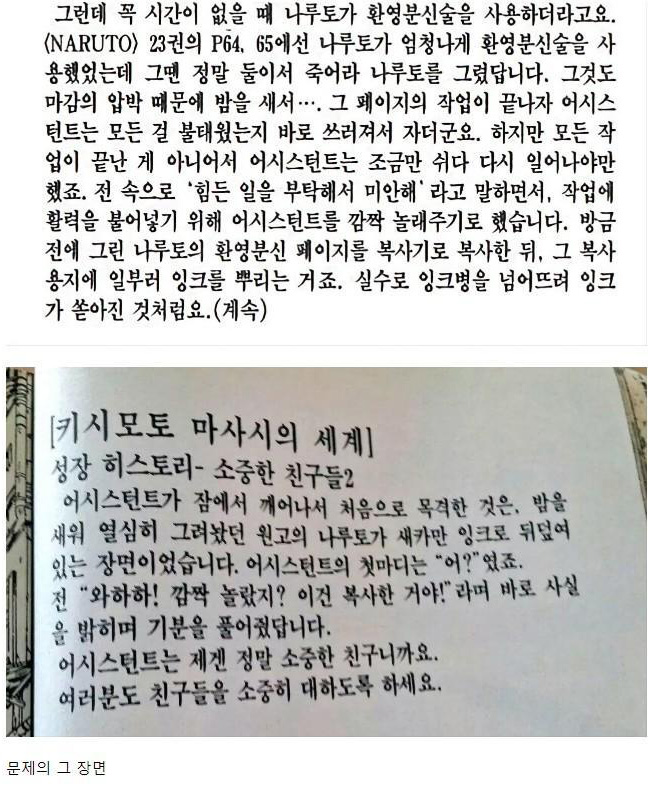 그런데 꼭 시간이 없을 때 나루토가 환영분신술을 사용하더라고요.
〈NARUTO〉 23권의 P64, 65에선 나루토가 엄청나게 환영분신술을 사
용했었는데 그땐 정말 둘이서 죽어라 나루토를 그렸답니다. 그것도
마감의 압박 때문에 밤을 새서…. 그 페이지의 작업이 끝나자 어시스
턴트는 모든 걸 불태웠는지 바로 쓰러져서 자더군요. 하지만 모든 작
업이 끝난 게 아니어서 어시스턴트는 조금만 쉬다 다시 일어나야만
했죠. 전 속으로 ‘힘든 일을 부탁해서 미안해’ 라고 말하면서, 작업에
활력을 불어넣기 위해 어시스턴트를 깜짝 놀래주기로 했습니다. 방금
전에 그린 나루토의 환영분신 페이지를 복사기로 복사한 뒤, 그 복사
용지에 일부러 잉크를 뿌리는 거죠. 실수로 잉크병을 넘어뜨려 잉크
가 쏟아진 것처럼요.(계속)
[키시모토 마사시의 세계]
성장 히스토리- 소중한 친구들2
어시스턴트가 잠에서 깨어나서 처음으로 목격한 것은, 밤을
새워 열심히 그려놨던 원고의 나루토가 새카만 잉크로 뒤덮여
있는 장면이었습니다. 어시스턴트의 첫마디는 “어?”였죠.
전 “와하하! 깜짝 놀랐지? 이건 복사한 거야!”라며 바로 사실
을 밝히며 기분을 풀어줬답니다.
어시스턴트는 제겐 정말 소중한 친구니까요.
여러분도 친구들을 소중히 대하도록 하세요.
문제의 그 장면